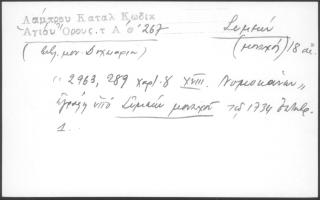 Λάμπρου Καταλ Κωδικ
Ἁγίου Ὄρους.τ Α σ 267
Συμεών
(μοναχός) 18 αἰ.
(βιβ. μον. Δοχειαρίου)
" 2963, 289 χαρτ. 8 XVIII. Νομοκάνων "
Ἐγράφη ὑπὸ Συμεών μοναχοῦ τῷ 1734
1.